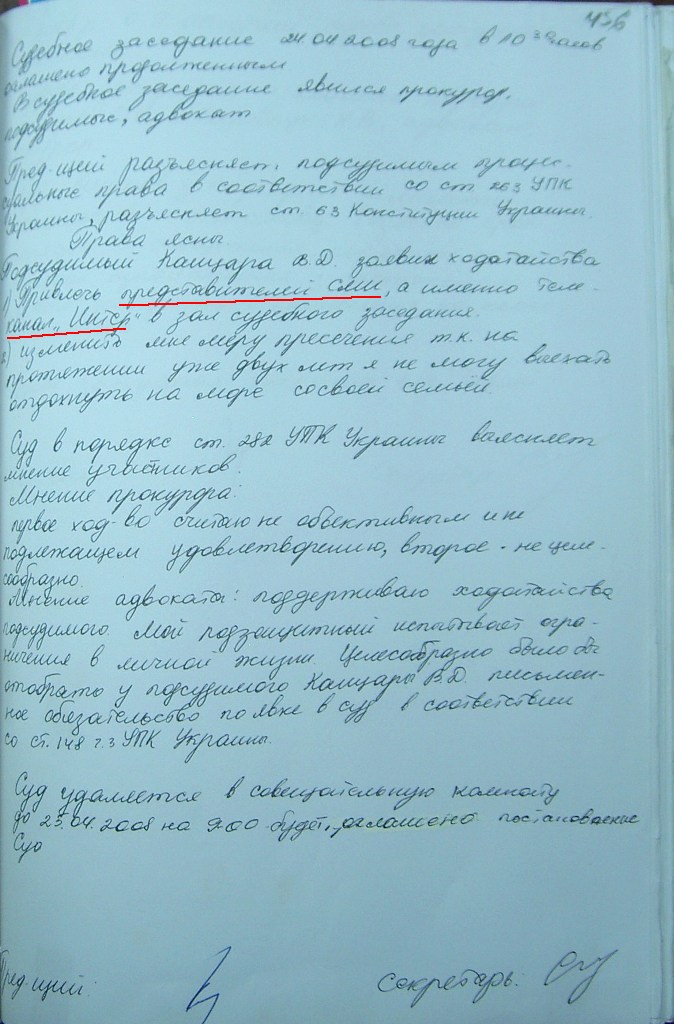 436
Судебное заседание 24.04.2008 года в 10 30 часов
оглашено продолженным
В судебное заседание явился прокурор,
подсудимые, адвокат
Пред-щий разъясняет подсудимым процес-
суальные права в соответствии со ст 263 УПК
Украины, разъясняет ст. 63 Конституции Украины.
Права ясны.
Подсудимый Кащара В.Д. заявил ходатайства
1) Привлечь представителей СМИ, а именно теле-
канал „Интер" в зал судебного заседания.
2) изменить мне меру пресечения т.к. на
протяжении уже двух лет я не могу выехать
отдохнуть на море со своей семьей.
Суд в порядке ст. 282 УПК Украины выясняет
мнение участников.
Мнение прокурора:
первое ход-во считаю не объективным и не
подлежащем удовлетворению, второе - не целе-
сообразно.
Мнение адвоката: поддерживаю ходатайства
подсудимого. Мой подзащитный испытывает огра-
ничения в личной жизни. Целесообразно было бы
отобрать у подсудимого Кащары В.Д. письмен-
ное обязательство по явке в суд в соответствии
со ст. 148 ч.3 УПК Украины.
Суд удаляется в совещательную комнату
до 25.04.2008 на 9 00 будет оглашено постановление
Суд
Пред-щий:
Секретарь: